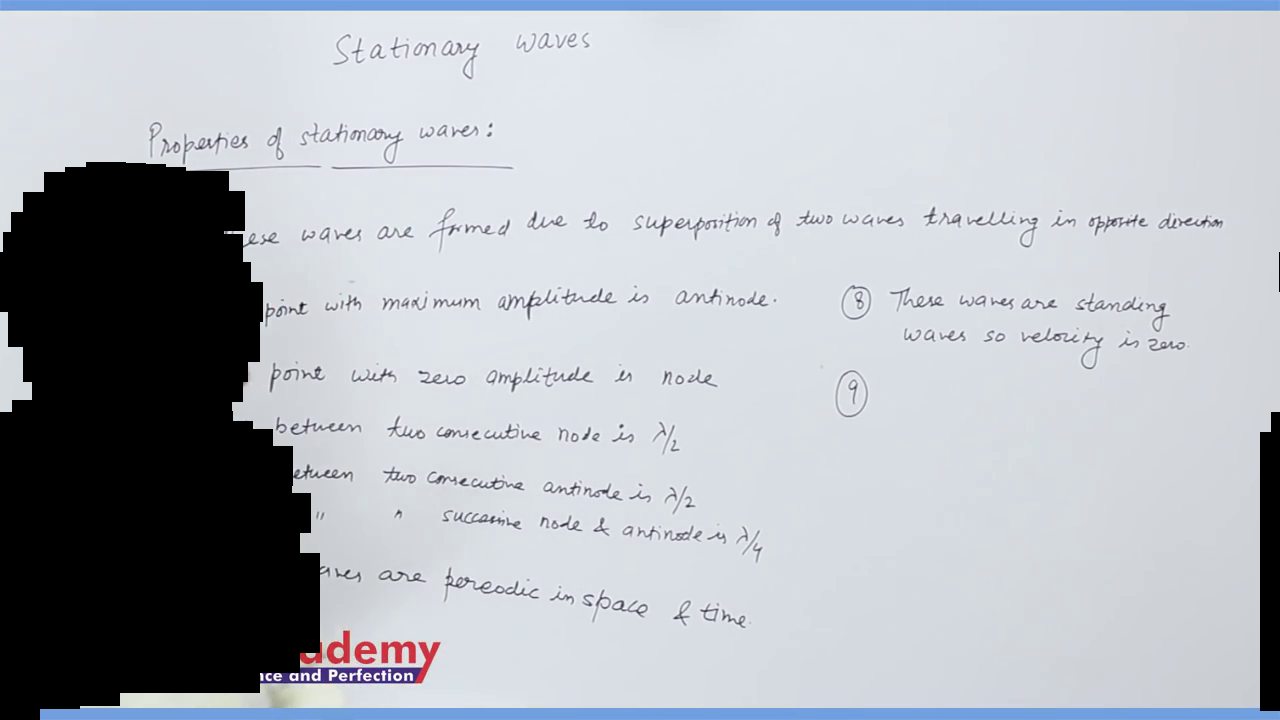 Stationary waves
Properties of stationary waves:
waves are formed due to superposition of two waves travelling in opposite direction
point with maximum amplitude is antinode.
point with zero amplitude is node
between two consecutive node is λ/2
two consecutive antinode is λ/2
" " successive node & antinode is λ/4
are pereodic in space & time.
8 These waves are standing
waves so velocity is zero.
9
and Perfection